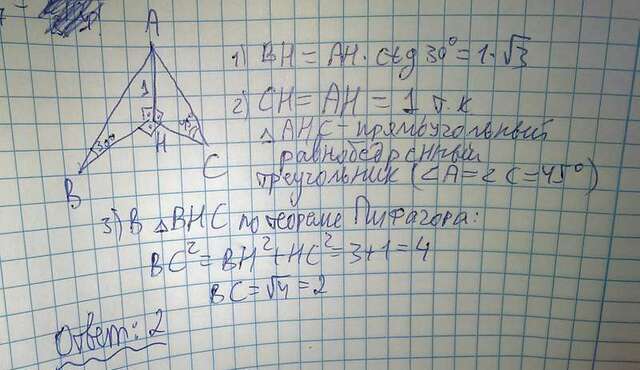 A
1
30°
45°
H
B
C
1) BH = AH · ctg 30° = 1·√3
2) CH = AH = 1 т.к
△ AHC – прямоугольный
равнобедренный
треугольник (∠A = ∠C = 45°)
3) В △ BHC по теореме Пифагора:
BC² = BH² + HC² = 3+1 = 4
BC = √4 = 2
Ответ: 2